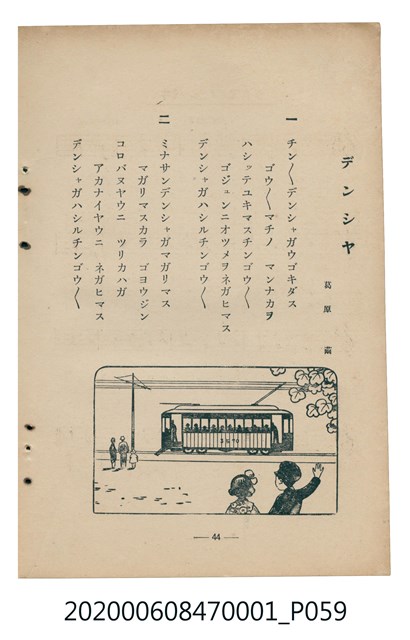 デンシヤ
葛原 𦾔
一 チン〳〵デンシャガウゴキダス
ゴウ〳〵マチノ マンナカヲ
ハシッテユキマスチンゴウ〳〵
ゴジュンニオツメヲネガヒマス
デンシャガハシルチンゴウ〳〵
二 ミナサンデンシャガマガリマス
マガリマスカラ ゴヨウジン
コロバヌヤウニ ツリカハガ
アカナイヤウニ ネガヒマス
デンシャガハシルチンゴウ〳〵
— 44 —
202000608470001_P059